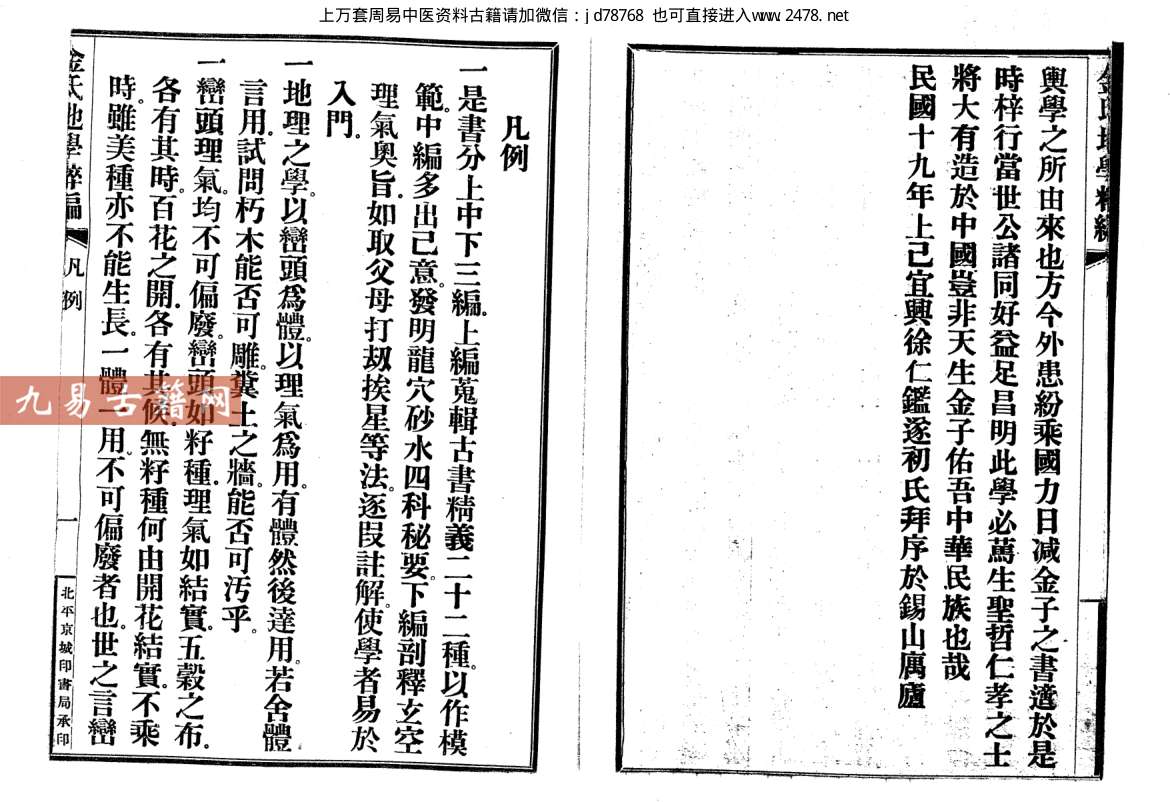 上万套周易中医资料古籍请加微信：jd78768 也可直接进入www.2478.net
輿學之所由來也方今外患紛乘國力日減金子之書適於是
時梓行當世公諸同好益足昌明此學必萬生聖哲仁孝之士
將大有造於中國豈非天生金子佑吾中華民族也哉
民國十九年上巳宜興徐仁鑑遂初氏拜序於錫山厲廬
凡例
一是書分上中下三編.上編蒐輯古書精義二十二種。以作模
範。中編多出己意。發明龍穴砂水四科秘要。下編剖釋玄空
理氣奧旨.如取父母打刼挨星等法。逐段註解。使學者易於
入門.
一地理之學。以巒頭爲體.以理氣爲用.有體然後達用.若舍體
言用.試問朽木能否可雕。糞土之牆。能否可汚乎。
一巒頭理氣.均不可偏廢。巒頭如籽種.理氣如結實.五穀之布.
各有其時.百花之開.各有其候.無籽種何由開花結實.不乘
時.雖美種亦不能生長.一體一用.不可偏廢者也.世之言巒
金氏地學粹編
凡例
一
北平京城印書局承印
九易古籍网